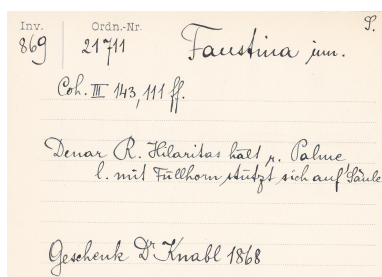 Inv. Ordn.-Nr. S.
869 21711 Faustina jun.
Coh. III 143, 111 ff.
Denar R. Hilaritas hält r. Palme
l. mit Füllhorn stützt sich auf Säule
Geschenk Dr Knabl 1868